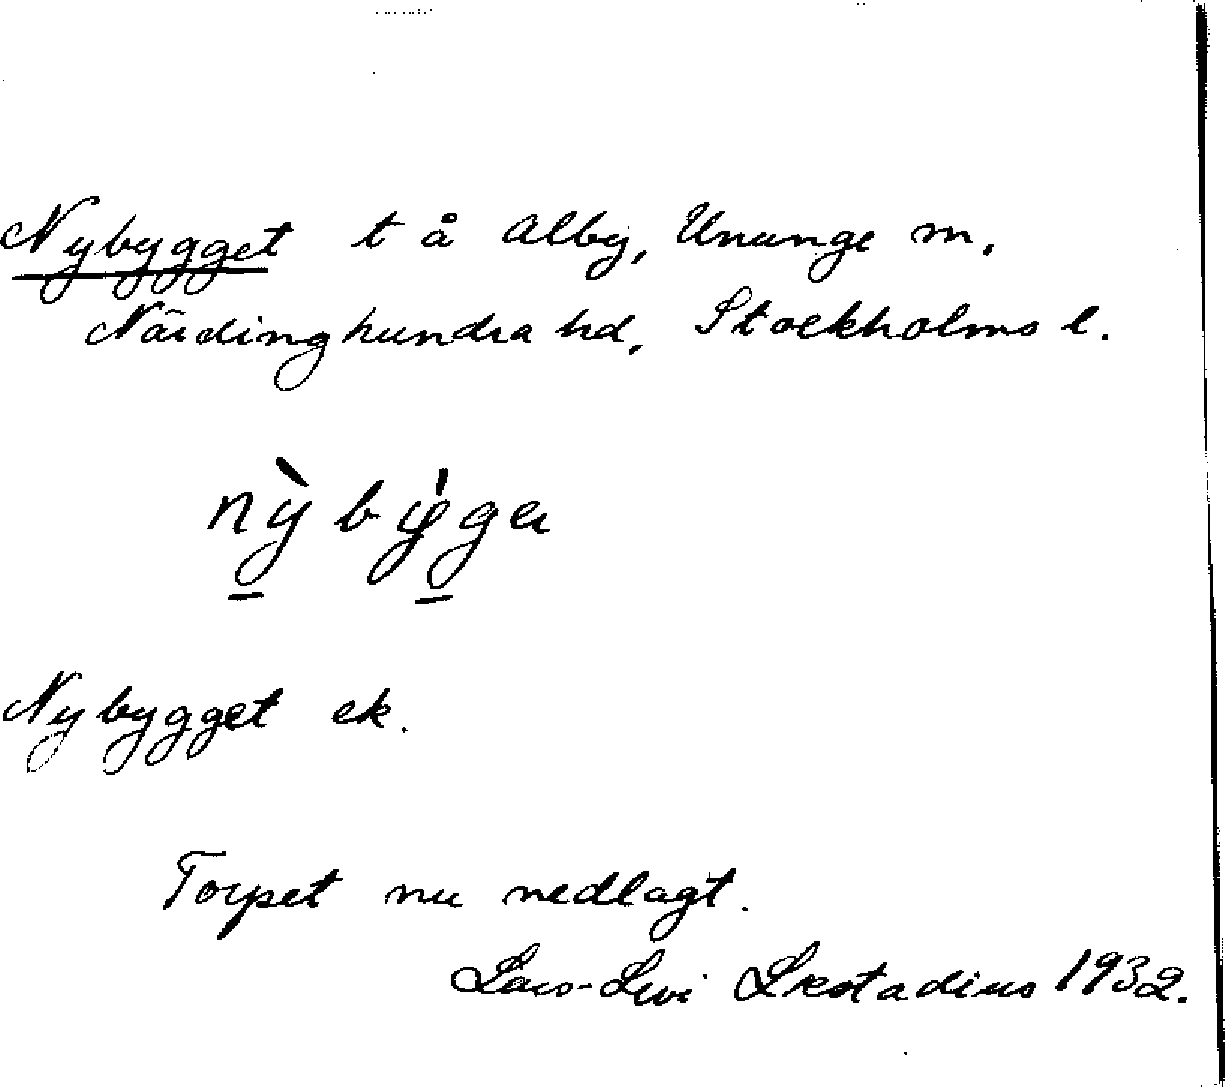 Nybygget t å Alby, Ununge sn,
Närdinghundra hd, Stockholms l.
nỳbýga
Nybygget ek.
Torpet nu nedlagt.
Lars-Levi Læstadius 1932.